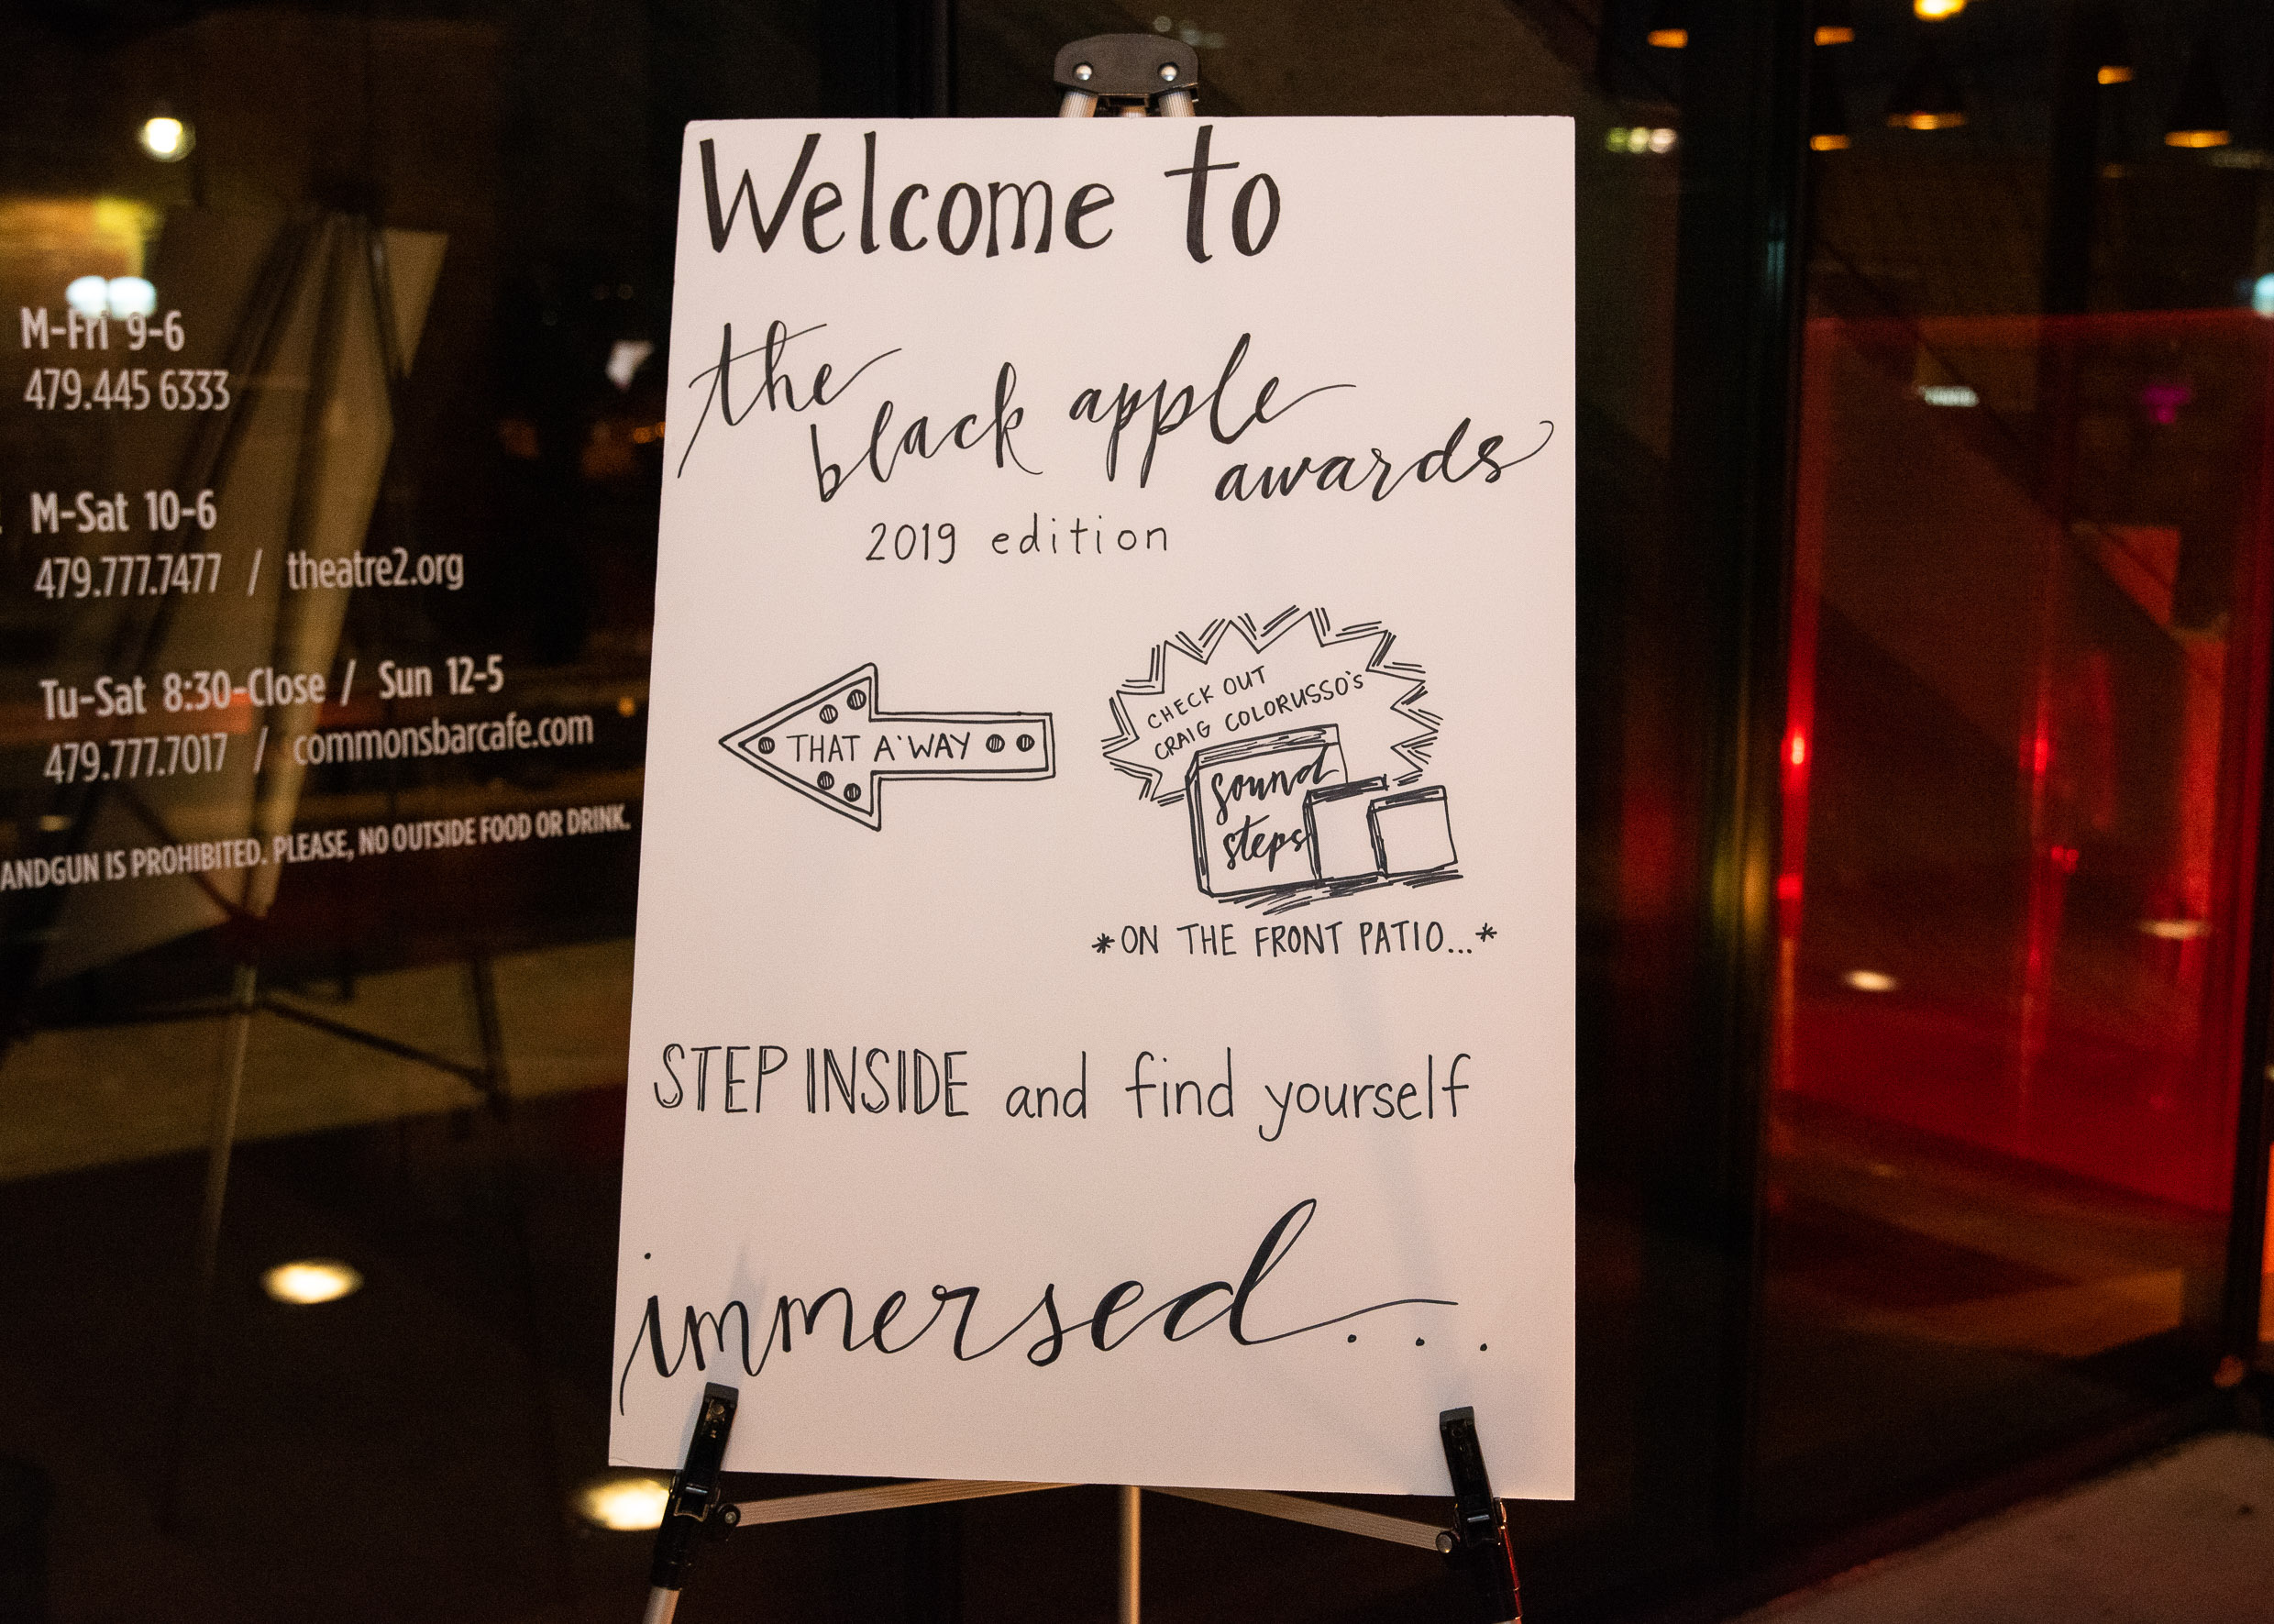 M-Fri 9-6
479.445 6333
M-Sat 10-6
479.777.7477 / theatre2.org
Tu-Sat 8:30-Close / Sun 12-5
479.777.7017 / commonsbarcafe.com
ANDGUN IS PROHIBITED. PLEASE, NO OUTSIDE FOOD OR DRINK.
Welcome to
the
black apple
awards
2019 edition
THAT A'WAY
CHECK OUT
CRAIG COLORUSSO'S
sound
steps
*ON THE FRONT PATIO...*
STEP INSIDE and find yourself
immersed...